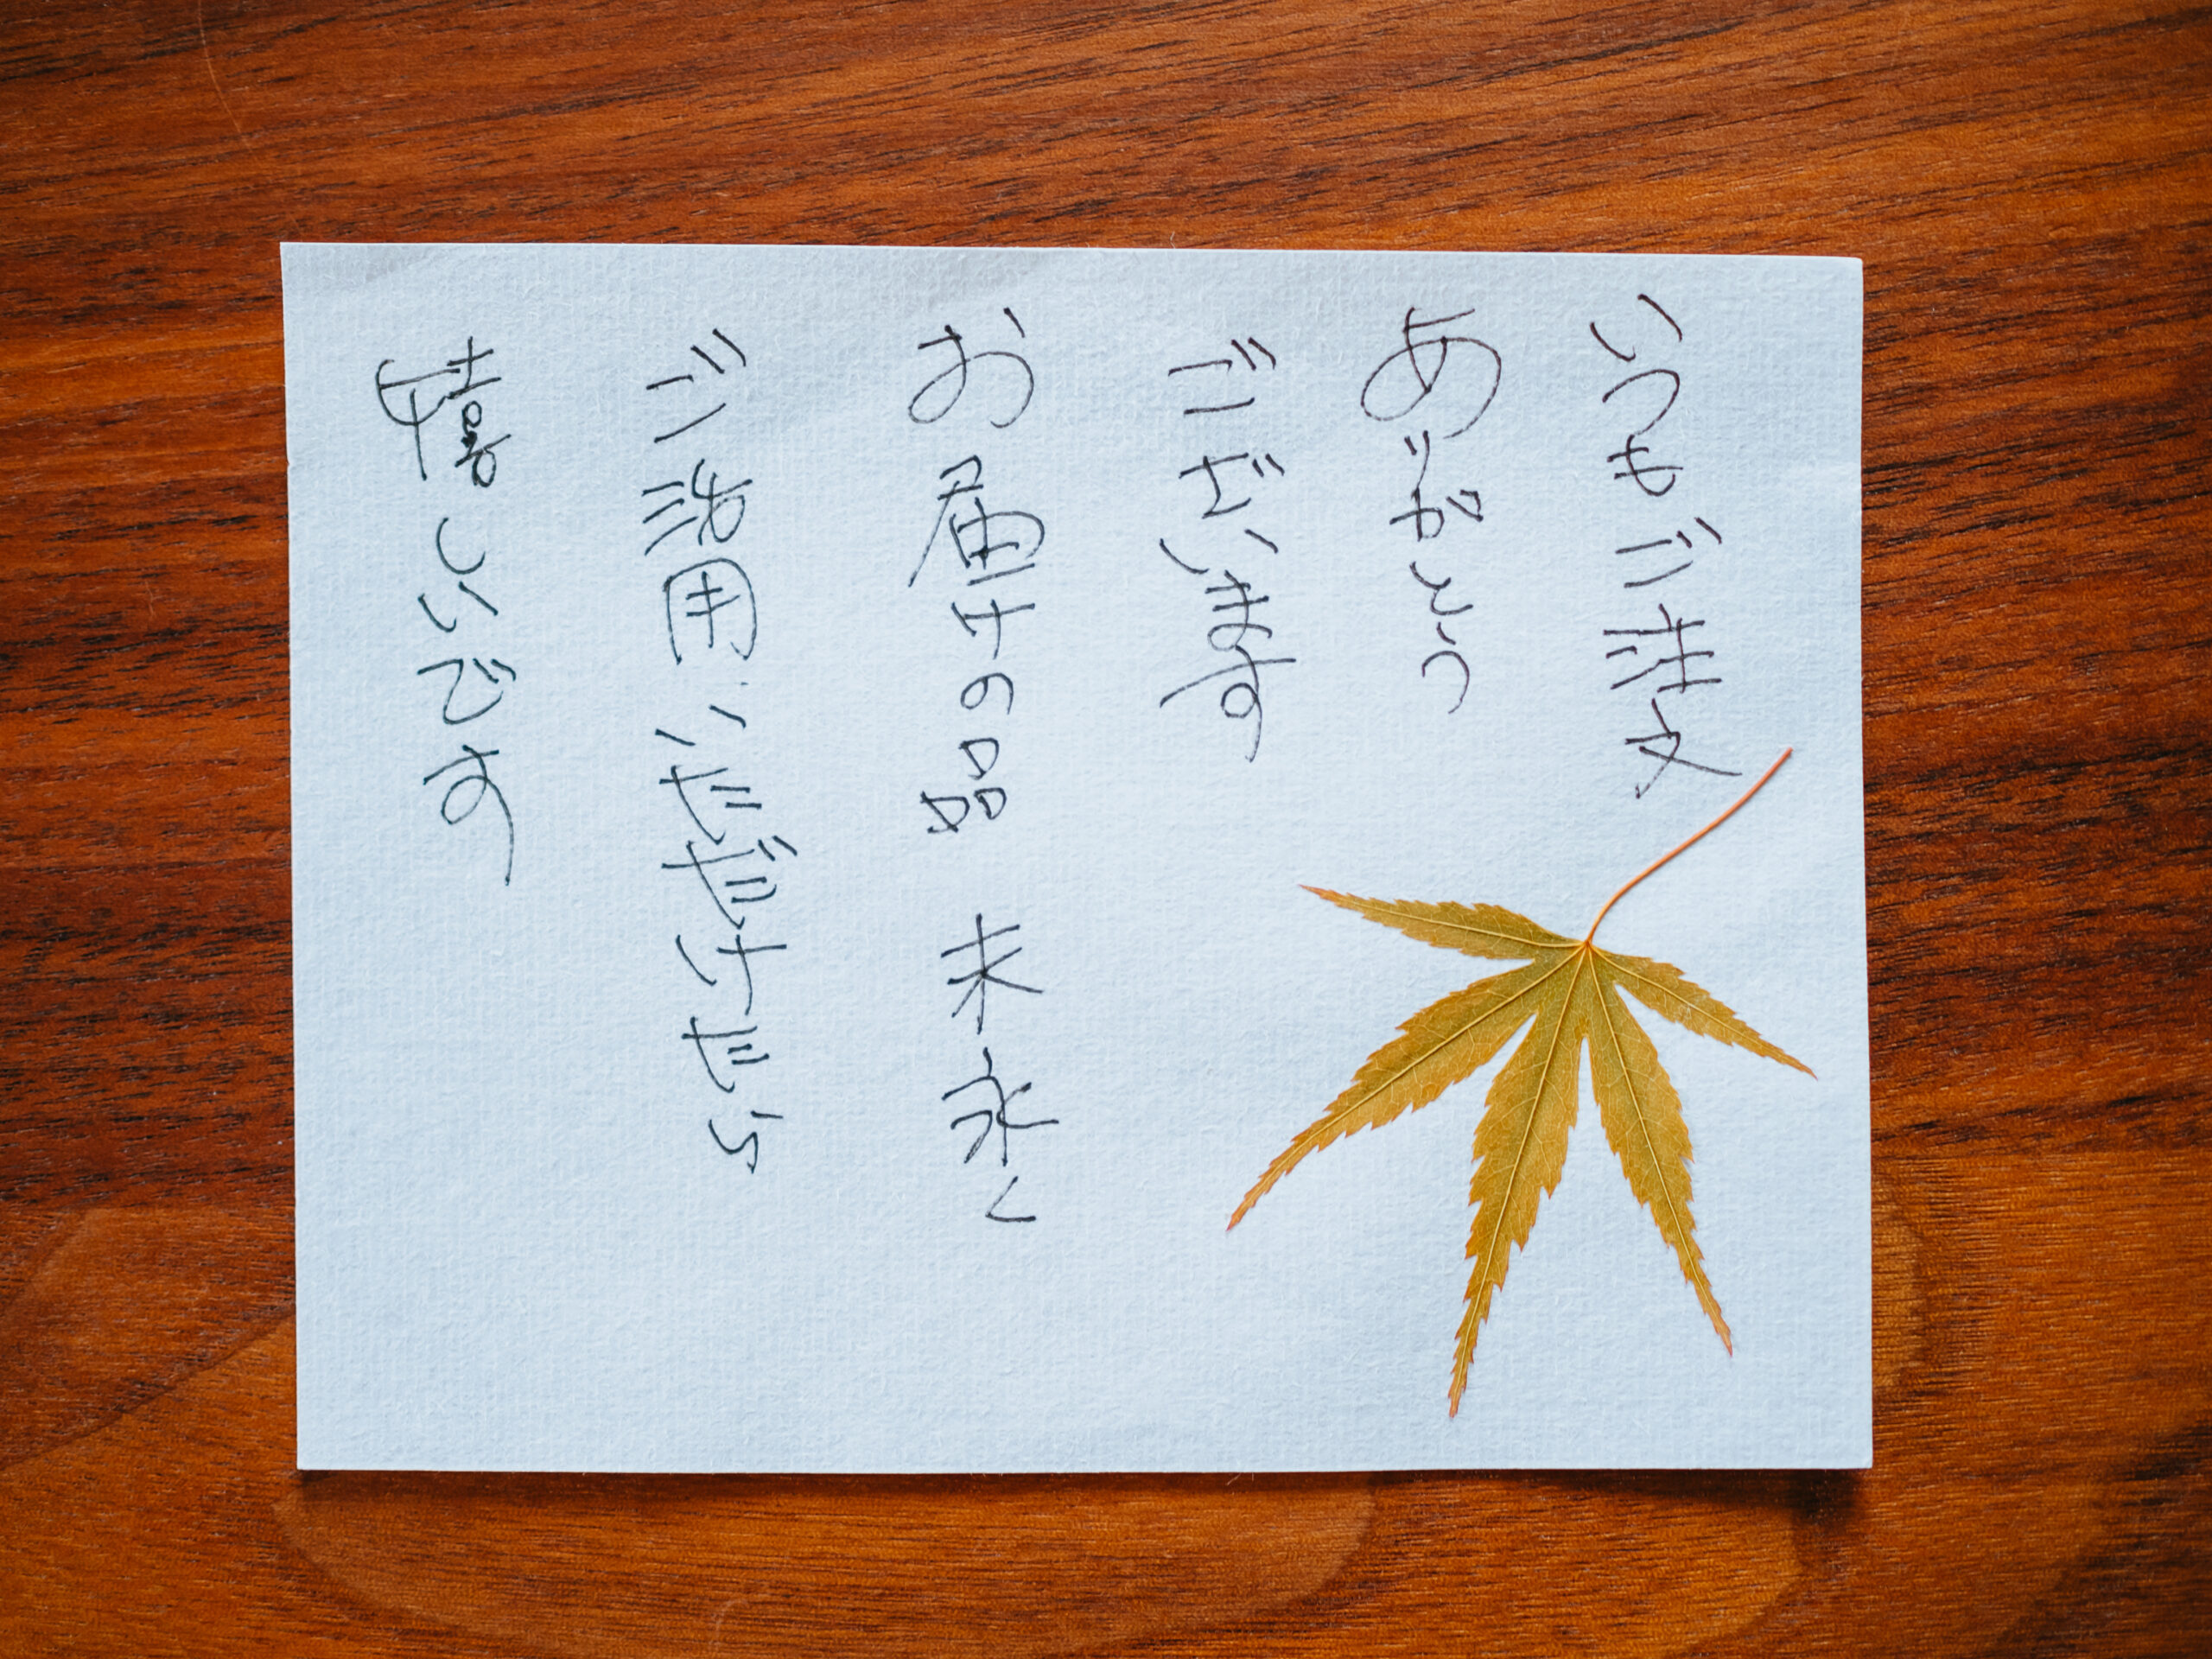 いつもご注文
ありがとう
ございます
お届けの品 末永く
ご活用いただけたら
嬉しいです